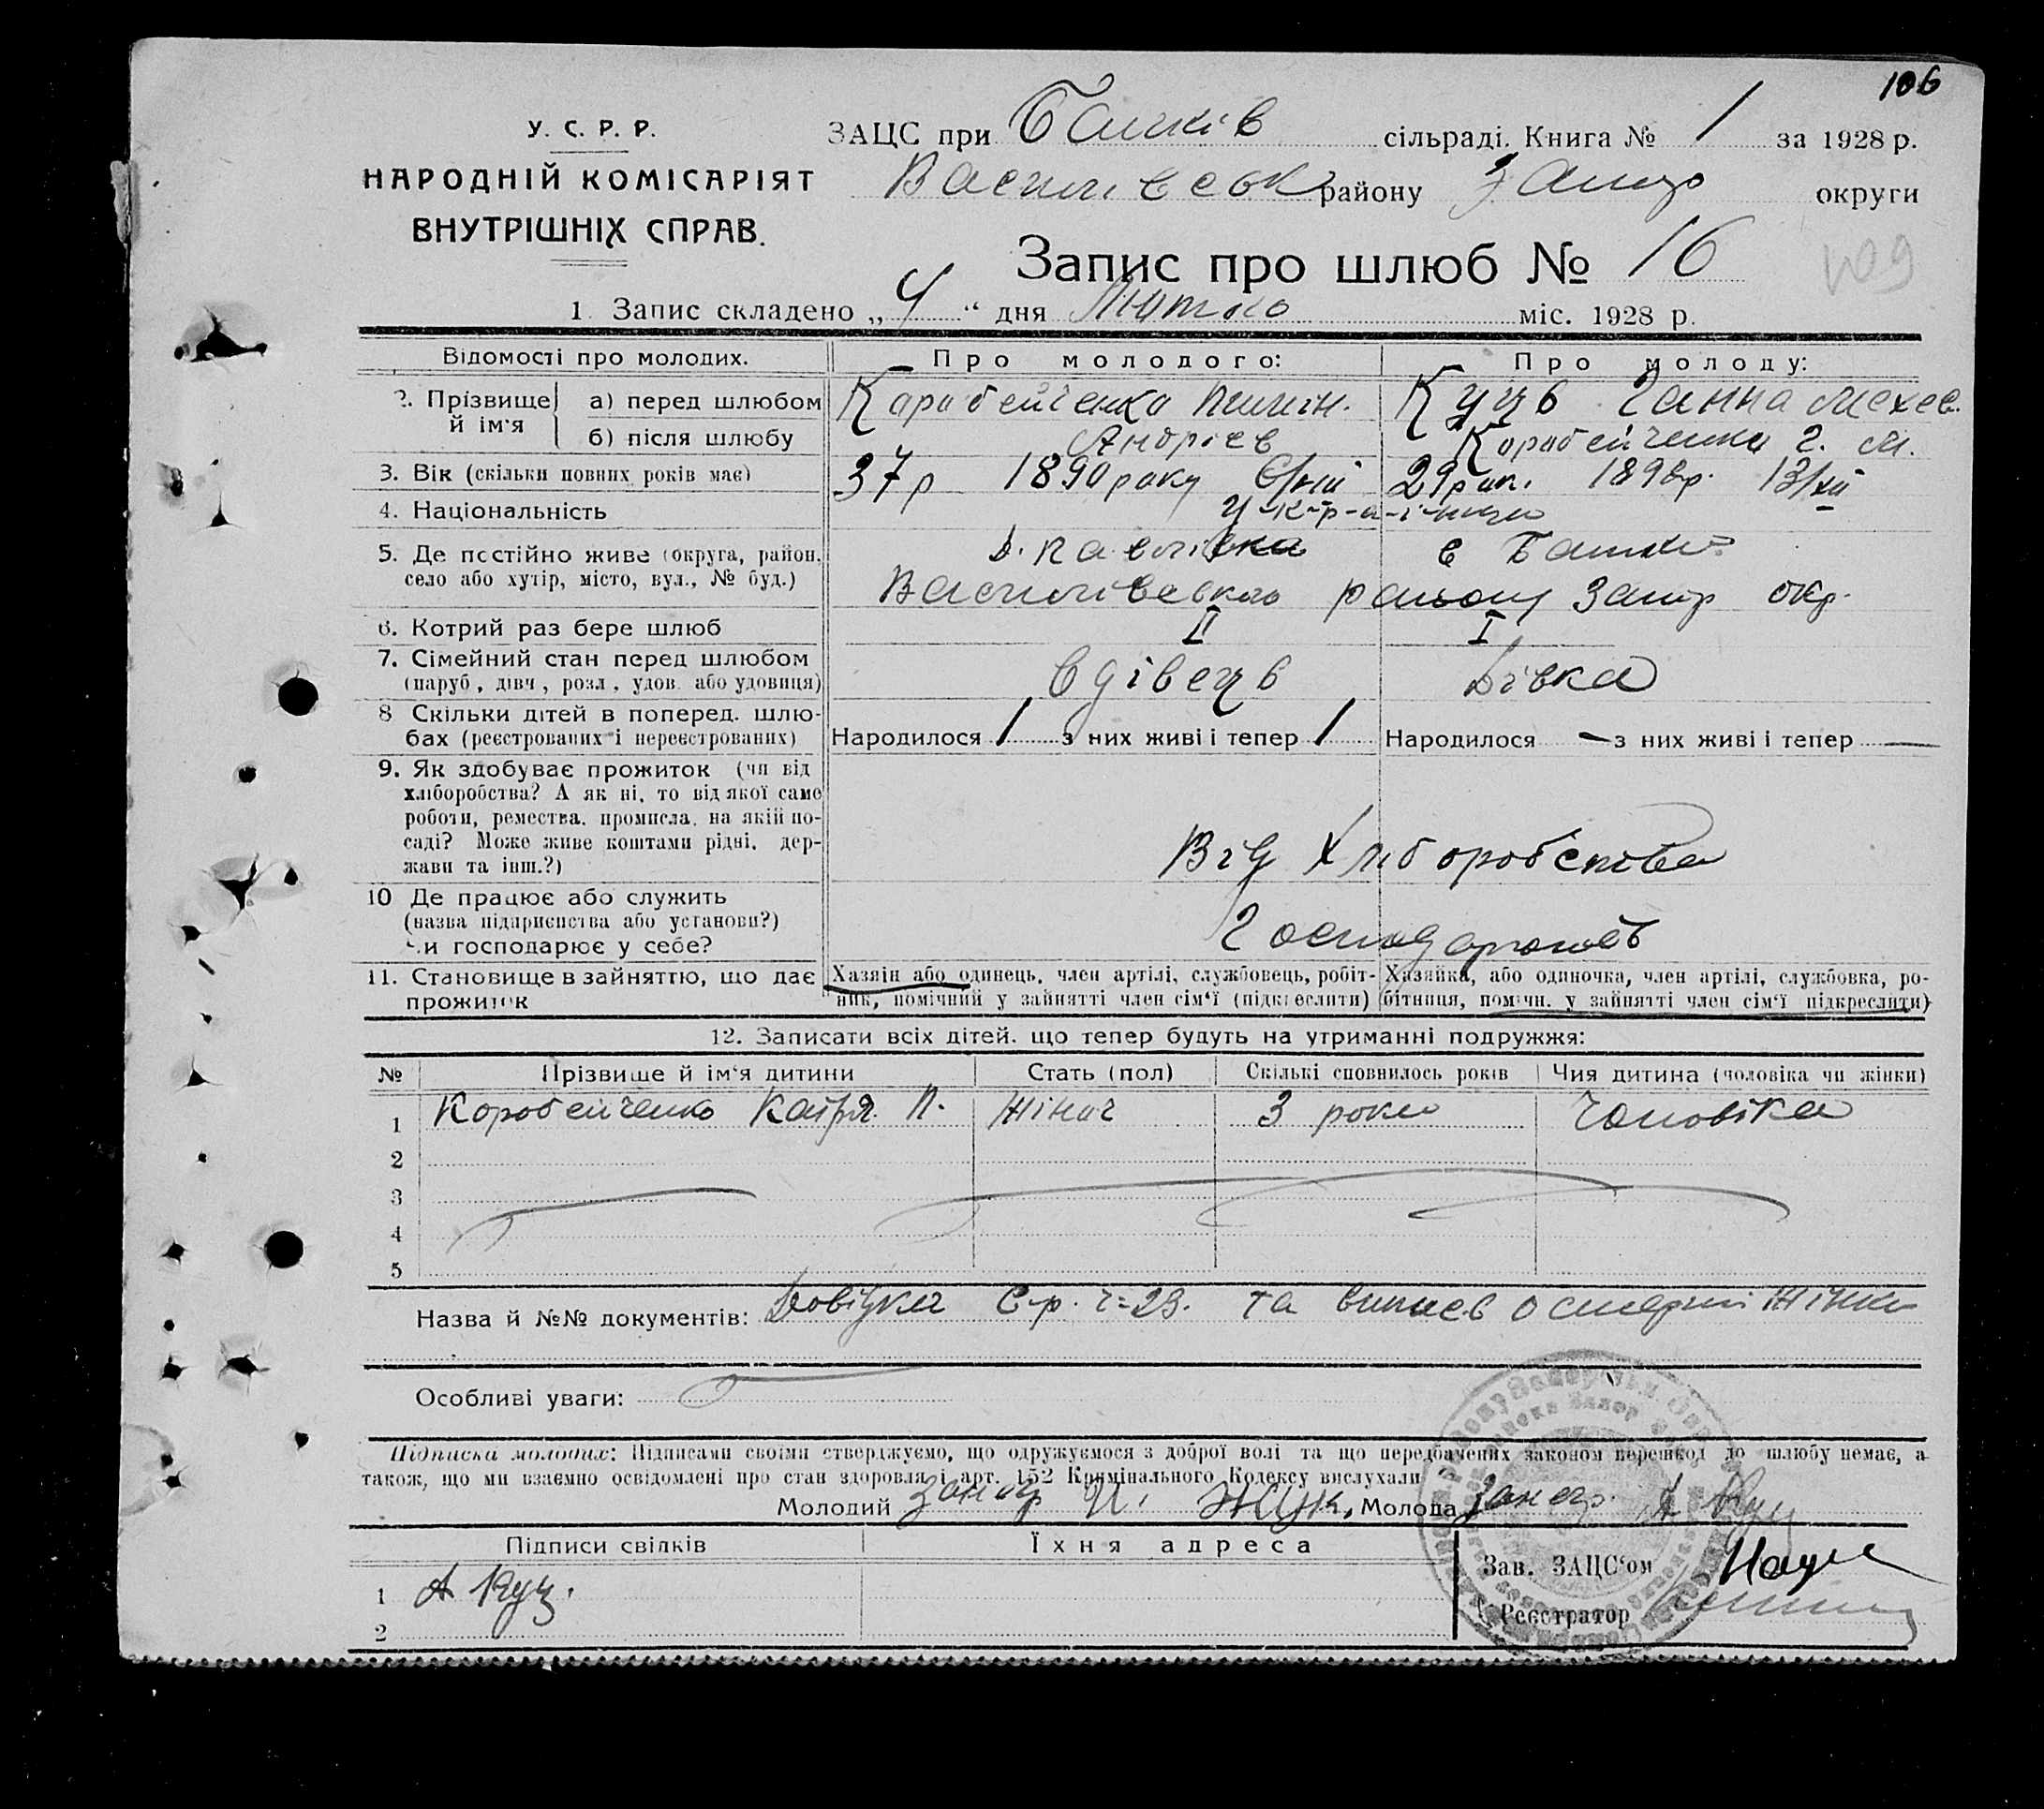 106
У. С. Р. Р.
НАРОДНІЙ КОМІСАРІЯТ
ВНУТРІШНІХ СПРАВ.
ЗАЦС при сільраді. Книга № 1 за 1928 р.
району округи
Запис про шлюб № 16
109
1. Запис складено „4“ дня міс. 1928 р.
Відомості про молодих. Про молодого: Про молоду:
2. Прізвище й ім'я
а) перед шлюбом Куць Ганна
б) після шлюбу Андріев Коробейченко Г. М.
3. Вік (скільки повних років має) 37 р 1890 року 29 рок. 1898 р. 13/XII
4. Національність у-к-р-а-ї-нци
5. Де постійно живе (округа, район, село або хутір, місто, вул., № буд.)
Василівського району Запор окр.
6. Котрий раз бере шлюб II I
7. Сімейний стан перед шлюбом (паруб., дівч., розл., удов. або удовиця) Вдівець Дівка
8 Скільки дітей в поперед. шлюбах (реєстрованих і нереєстрованих) Народилося 1 з них живі і тепер 1 Народилося — з них живі і тепер —
9. Як здобуває прожиток (чи від
хліборобства? А як ні, то від якої саме
роботи, ремества, промисла, на якій по-
саді? Може живе коштами рідні, дер-
жави та інш.?)
Від Хліборобства
10 Де працює або служить
(назва підприємства або установи?)
чи господарює у себе?
11. Становище в зайняттю, що дає прожиток
Хазяїн або одинець, член артілі, службовець, робіт-
ник, помічний у зайнятті член сім'ї (підкреслити)
Хазяйка, або одиночка, член артілі, службовка, ро-
бітниця, помічн. у зайнятті член сім'ї підкреслити)
12. Записати всіх дітей, що тепер будуть на утриманні подружжя:
№ Прізвище й ім'я дитини Стать (пол) Скількі сповнилось років Чия дитина (чоловіка чи жінки)
1 Коробейченко Катря П. Жіноч 3 роки Чоловіка
2
3
4
5
Назва й №№ документів: Довідка С-р. ч=23. та випись о смерти жінки
Особливі уваги:
Підписка молодих: Підписами своїми стверджуємо, що одружуємося з доброї волі та що передбачених законом перешкод до шлюбу немає, а
також, що ми взаємно освідомлені про стан здоровля і арт. 152 Кримінального Кодексу вислухали
Молодий Молода
Підписи свідків Їхня адреса
Зав. ЗАЦС'ом
1 А Куц.
Реєстратор
2